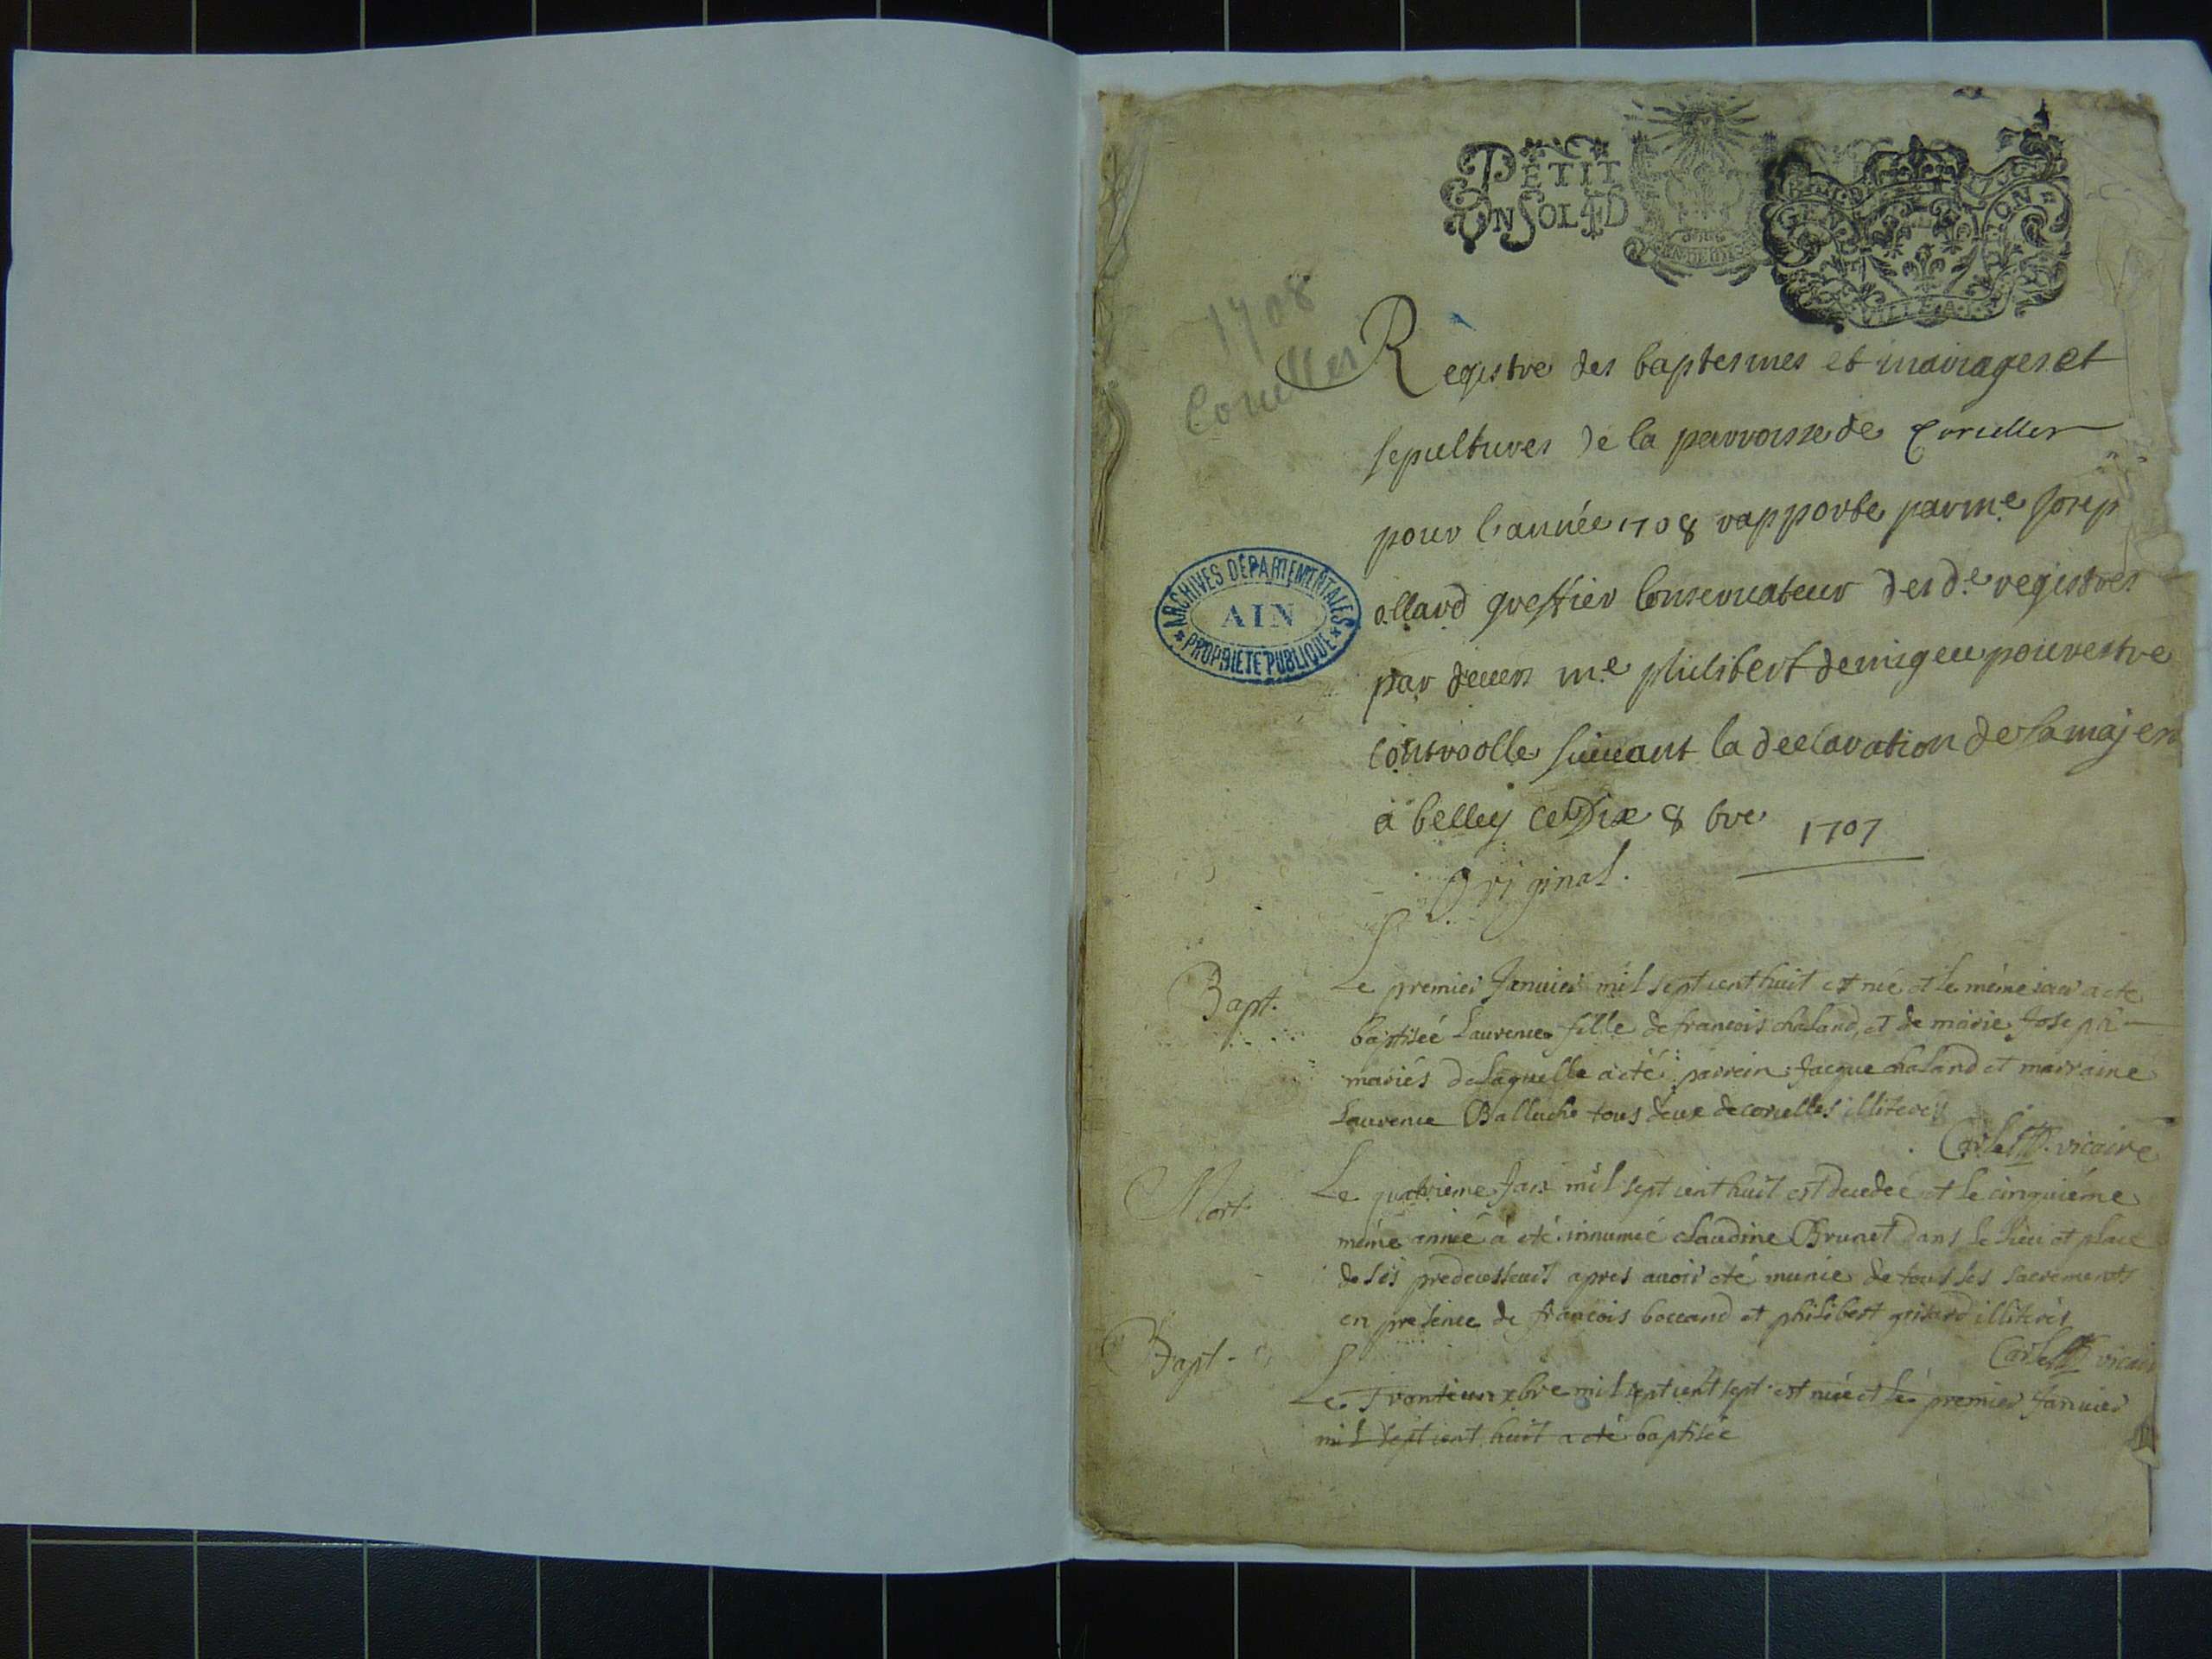 PETIT
UN SOL 4 D
GEN
ON
1708
Corcelles
Registre des baptesmes et mairages et
sepultures de la parroisse de Corcelles
pour l'année 1708 rapporte par me Josep
ollard greffier Conservateur des de registres
ARCHIVES DÉPARTEMENTALES
AIN
PROPRIETE PUBLIQUE
par devers me philibert demigeu pour estre
Controolle suivant la declaration de sa majes
a belley ce Dix 8 bre 1707
Original.
Bapt.
Le premier Januier mil sept cent huit est née et le même jour a ete
baptisée Laurence fille de francois chaland, et de marie Joseph
mariés de laquelle a été parrein Jacque chaland et marraine
Laurence Balluche tous deux de corcelles illiterés
Carlet vicaire
Mort
Le quatrieme Janr mil sept cent huit est decedeé et le cinquiéme
même année à eté innumée claudine Brunet dans le lieu et place
de ses predecesseurs apres auoir eté munie de tous ses sacrements
en presence de francois boccand et philibert grisard illiterés
Carlet vicair
Bapt
Le Trontieme xbre mil sept cent sept est neé et le premier Januier
mil sept cent huit a eté baptisée